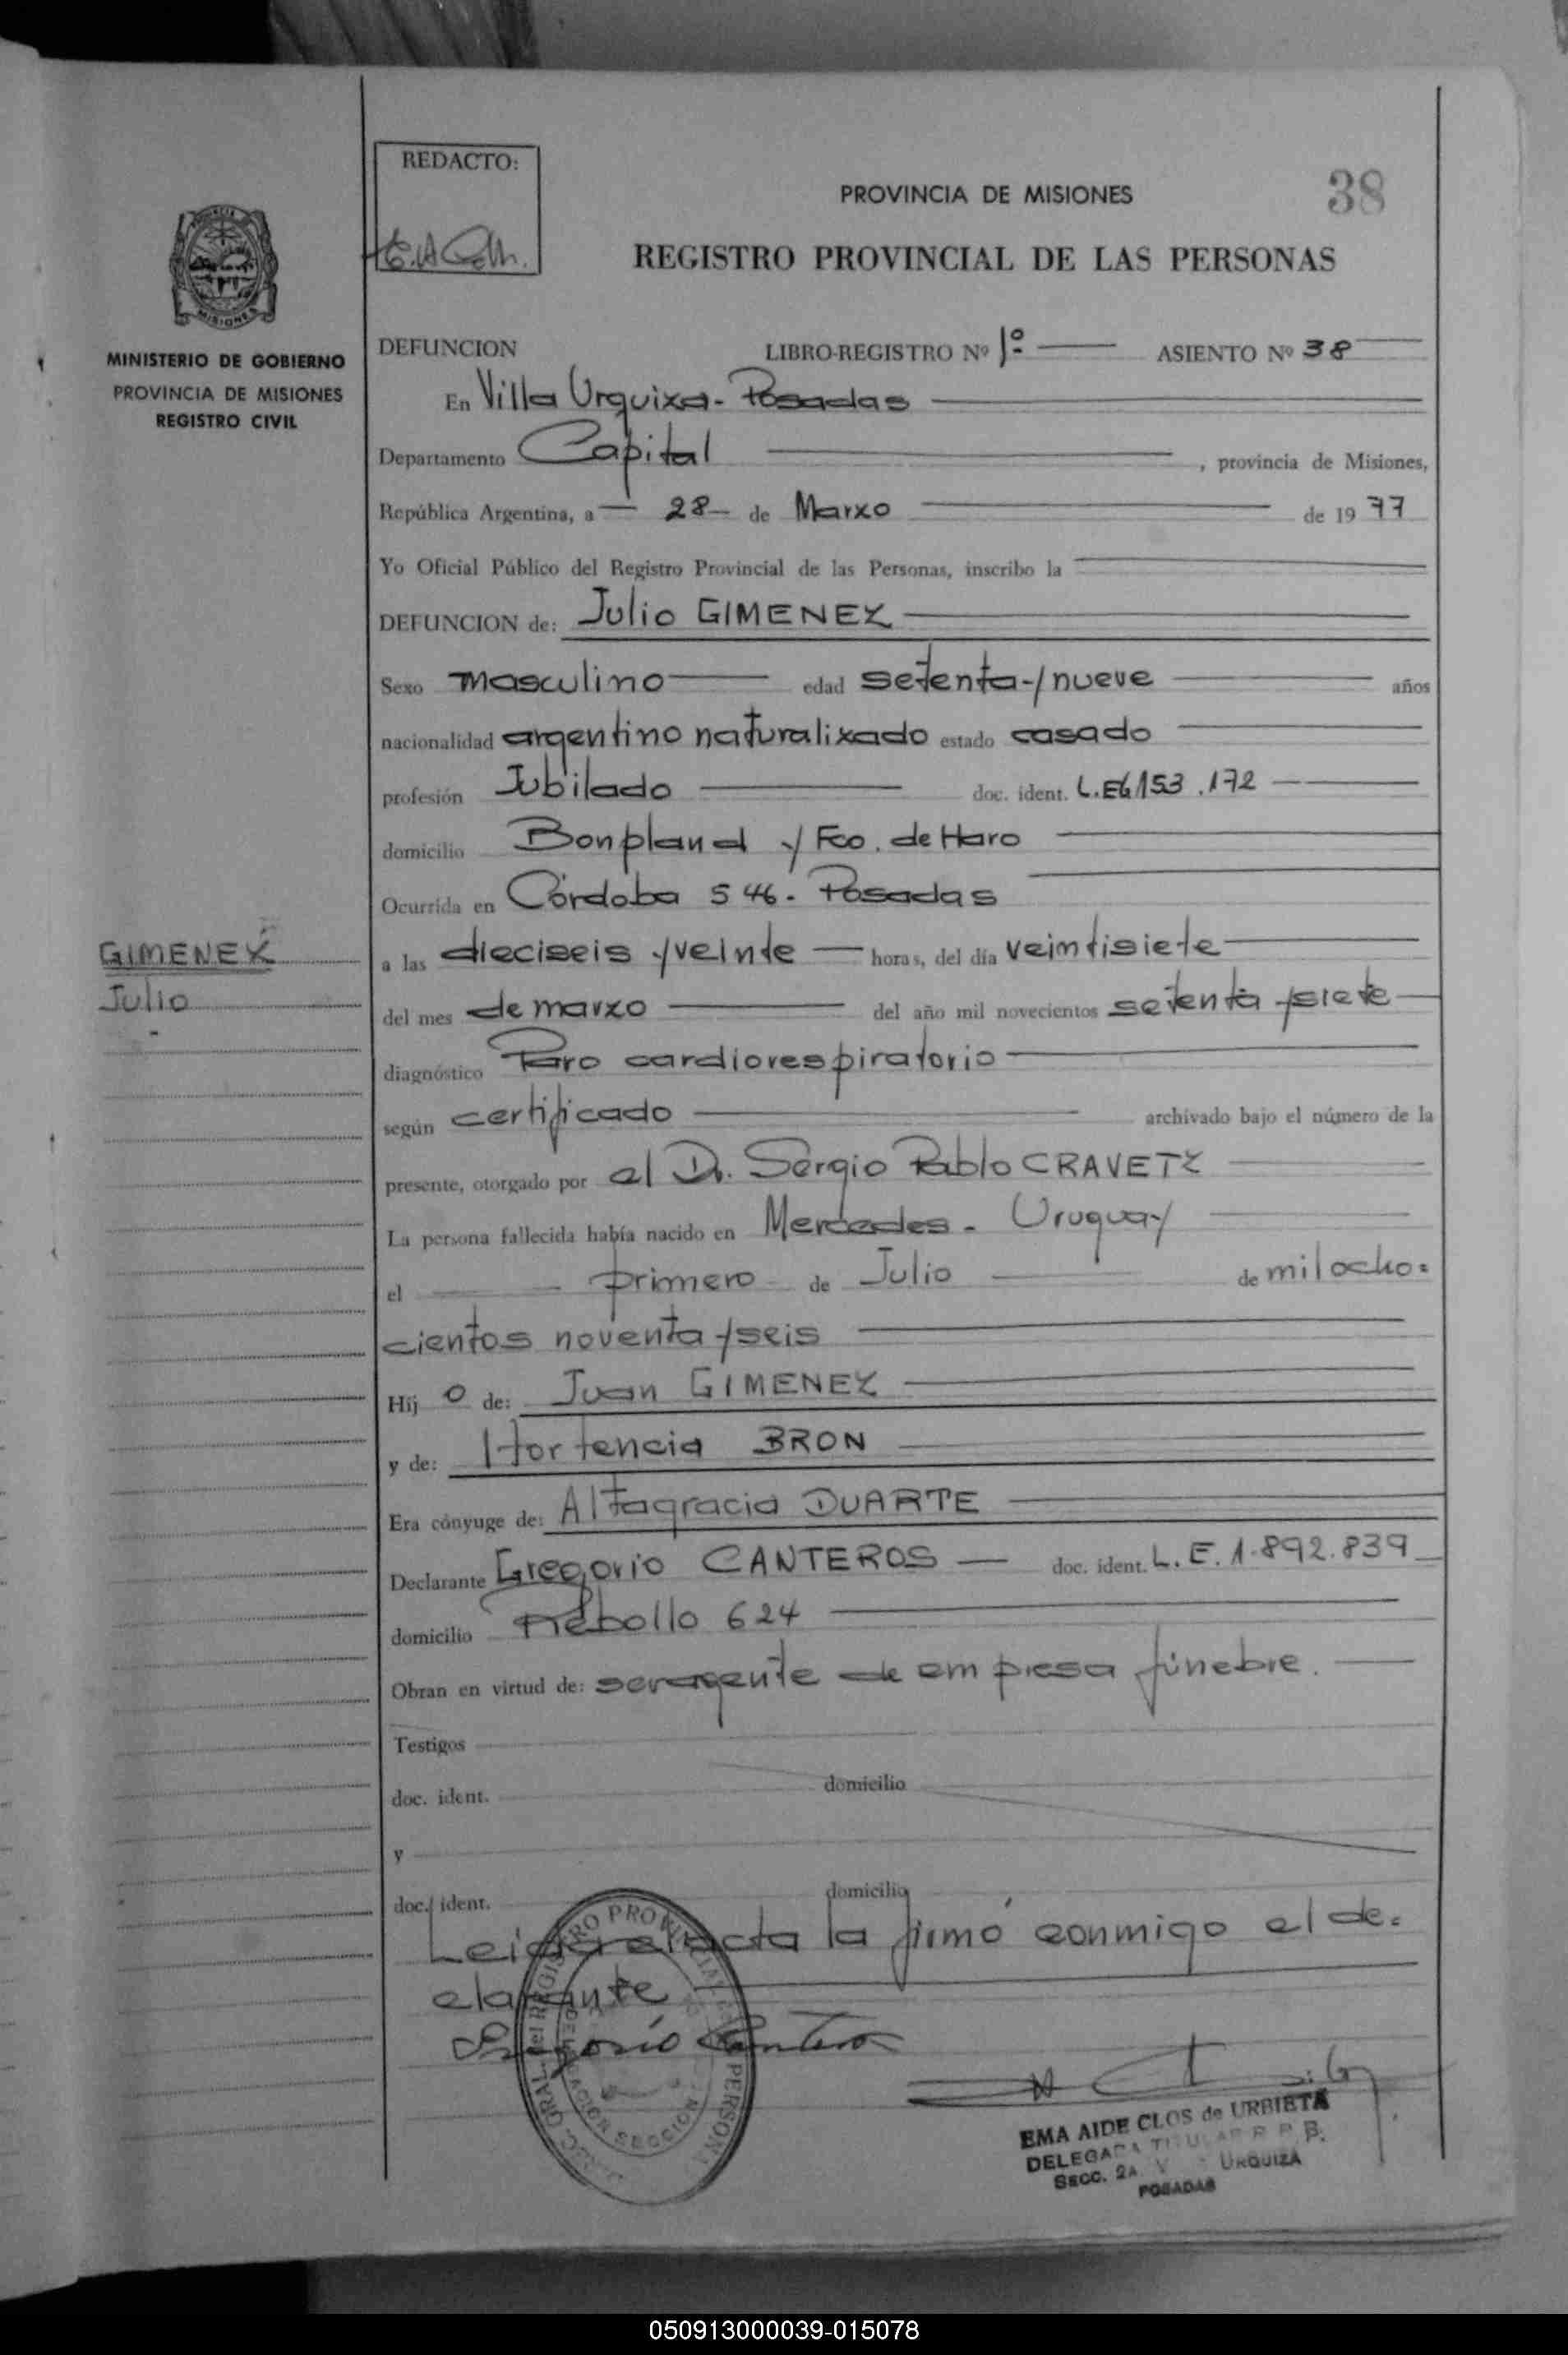 REDACTO:
38
PROVINCIA DE MISIONES
REGISTRO PROVINCIAL DE LAS PERSONAS
MISIONES
MINISTERIO DE GOBIERNO
PROVINCIA DE MISIONES
REGISTRO CIVIL
DEFUNCION LIBRO-REGISTRO Nº 1º ASIENTO Nº 38
En Villa Urquiza - Posadas
Departamento Capital , provincia de Misiones,
República Argentina, a 28 de Marzo de 1977
Yo Oficial Público del Registro Provincial de las Personas, inscribo la
DEFUNCION de: Julio GIMENEZ
Sexo masculino edad setenta y nueve años
nacionalidad argentino naturalizado estado casado
profesión Jubilado doc. ident. L.E 6.153.172
domicilio Bonpland y Fco. de Haro
Ocurrida en Córdoba 546 - Posadas
GIMENEZ
Julio
a las dieciseis y veinte horas, del día veintisiete
del mes de marzo del año mil novecientos setenta y siete
diagnóstico Paro cardiorespiratorio
según certificado archivado bajo el número de la
presente, otorgado por el Dr. Sergio Pablo CRAVETZ
La persona fallecida había nacido en Mercedes - Uruguay
el primero de Julio de mil ocho=
cientos noventa y seis
Hij o de: Juan GIMENEZ
y de: Hortencia BRON
Era cónyuge de: Altagracia DUARTE
Declarante Gregorio CANTEROS doc. ident. L.E. 1.892.839
domicilio Rebollo 624
Obran en virtud de: ser agente de empresa fúnebre.
Testigos
doc. ident. domicilio
y
doc. ident. domicilio
Leida el acta la firmó conmigo el de=
clarante
Gregorio Canteros
EMA AIDE CLOS de URBIETA
DELEGADA TITULAR R. P. P.
SECC. 2A V URQUIZA
POSADAS
050913000039-015078